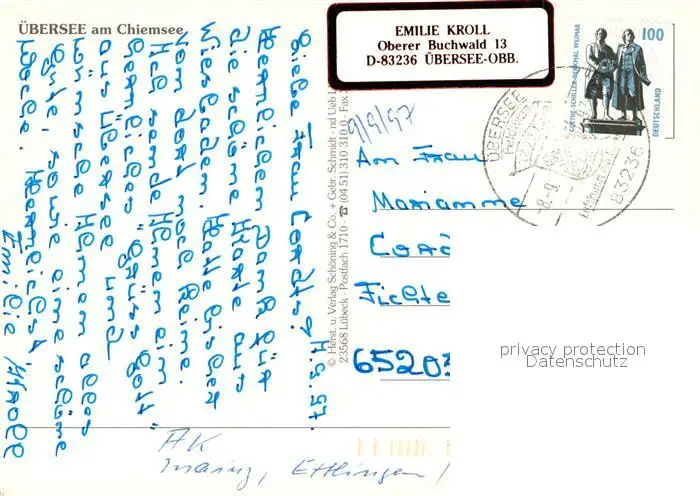 ÜBERSEE am Chiemsee
EMILIE KROLL
Oberer Buchwald 13
D-83236 ÜBERSEE-OBB.
100
GOETHE-SCHILLER-DENKMAL WEIMAR
DEUTSCHLAND
ÜBERSEE
83236
-8.-9.
9/9/97
9.9.97.
Liebe Frau
Herzlichen Dank für
die schöne Karte aus
Wiesbaden. Hatte bisher
von dort noch keine.
Ich sende Ihnen ein
herzliches "Grüss Gott"
aus Übersee und
wünsche Ihnen alles
Gute, sowie eine schöne
Woche. Herzlichst
Emilie Kroll
© Herst. u. Verlag Schöning & Co. + Gebr. Schmidt
23568 Lübeck · Postfach 1710 · ☎ (04 51) 310 310 · Fax
An Frau
Marianne
Fichte
65203
AK
Mainz, Ettlingen
privacy protection
Datenschutz